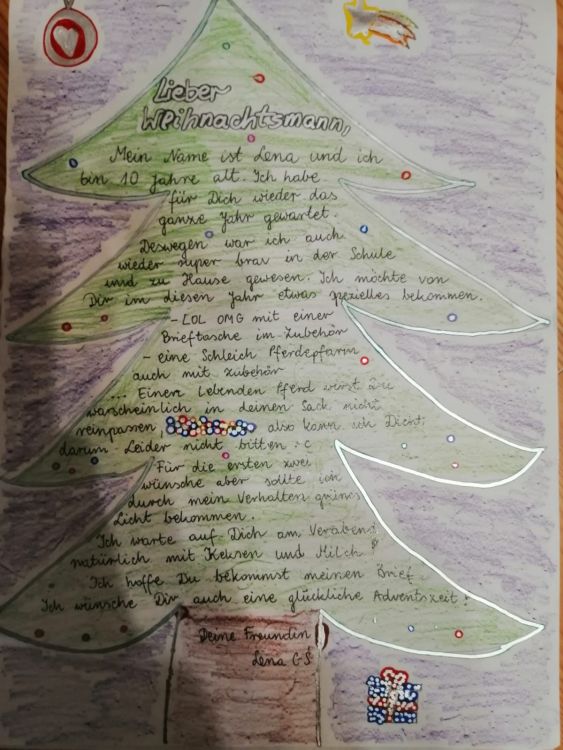 Lieber
Weihnachtsmann,
Mein Name ist Lena und ich
bin 10 Jahre alt. Ich habe
für Dich wieder das
ganze Jahr gewartet.
Deswegen war ich auch
wieder super brav in der Schule
und zu Hause gewesen. Ich möchte von
Dir im diesen Jahr etwas spezielles bekommen.
- LOL OMG mit einer
Brieftasche im Zubehör
- eine Schleich Pferdepfarm
auch mit zubehör
... Einen Lebenden Pferd wirst Du
warscheinlich in deinen Sack nicht
reinpassen, also kann ich Dich
darum Leider nicht bitten :c
Für die ersten zwei
wünsche aber sollte ich
durch mein Verhalten grünes
Licht bekommen.
Ich warte auf Dich am Vorabend
natürlich mit Keksen und Milch!
Ich hoffe Du bekommst meinen Brief.
Ich wünsche Dir auch eine glückliche Adventszeit!
Deine Freundin
Lena GS